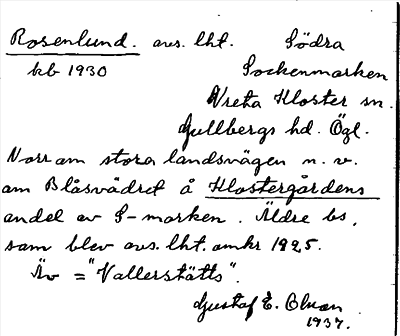 Rosenlund. avs. lht. Södra
kb 1930 Sockenmarken
Vreta Kloster sn.
Gullbergs hd. Ögl.
Norr om stora landsvägen n. v.
om Blåsvädret å Klostergårdens
andel av S-marken. Äldre bs,
som blev avs. lht. omkr 1925.
Äv = "Vallerstätts".
Gustaf E. Olson
1937.